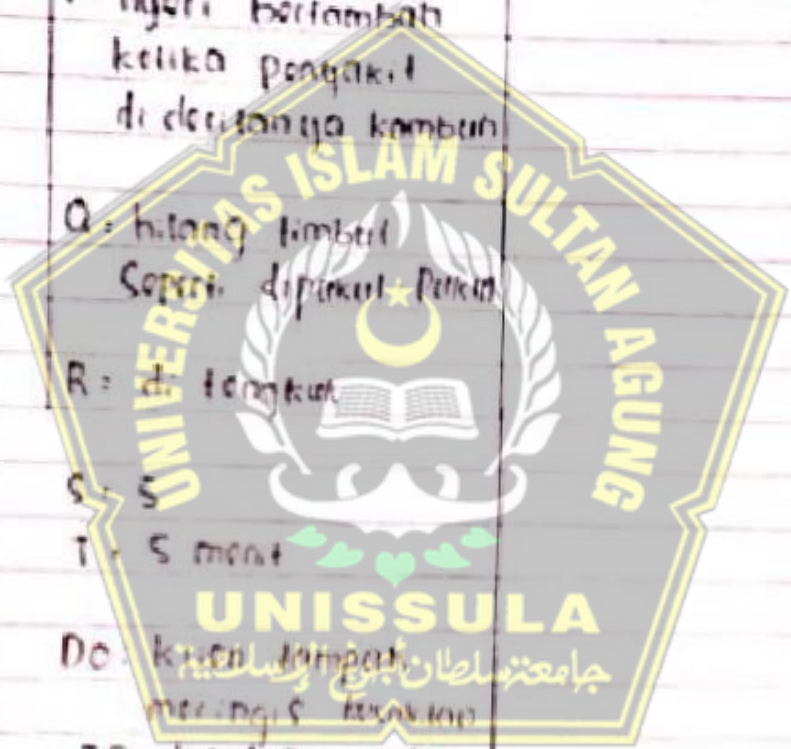 nyeri bertambah
ketika penyakit
di deritanya kambuh
Q = hilang timbul
Seperti dipukul
R = di tengkuk
S = 5
T = 5 menit
DO = klien tampak
meringis
UNIVERSITAS ISLAM SULTAN AGUNG
UNISSULA
جامعة سلطان أجونج الإسلامية